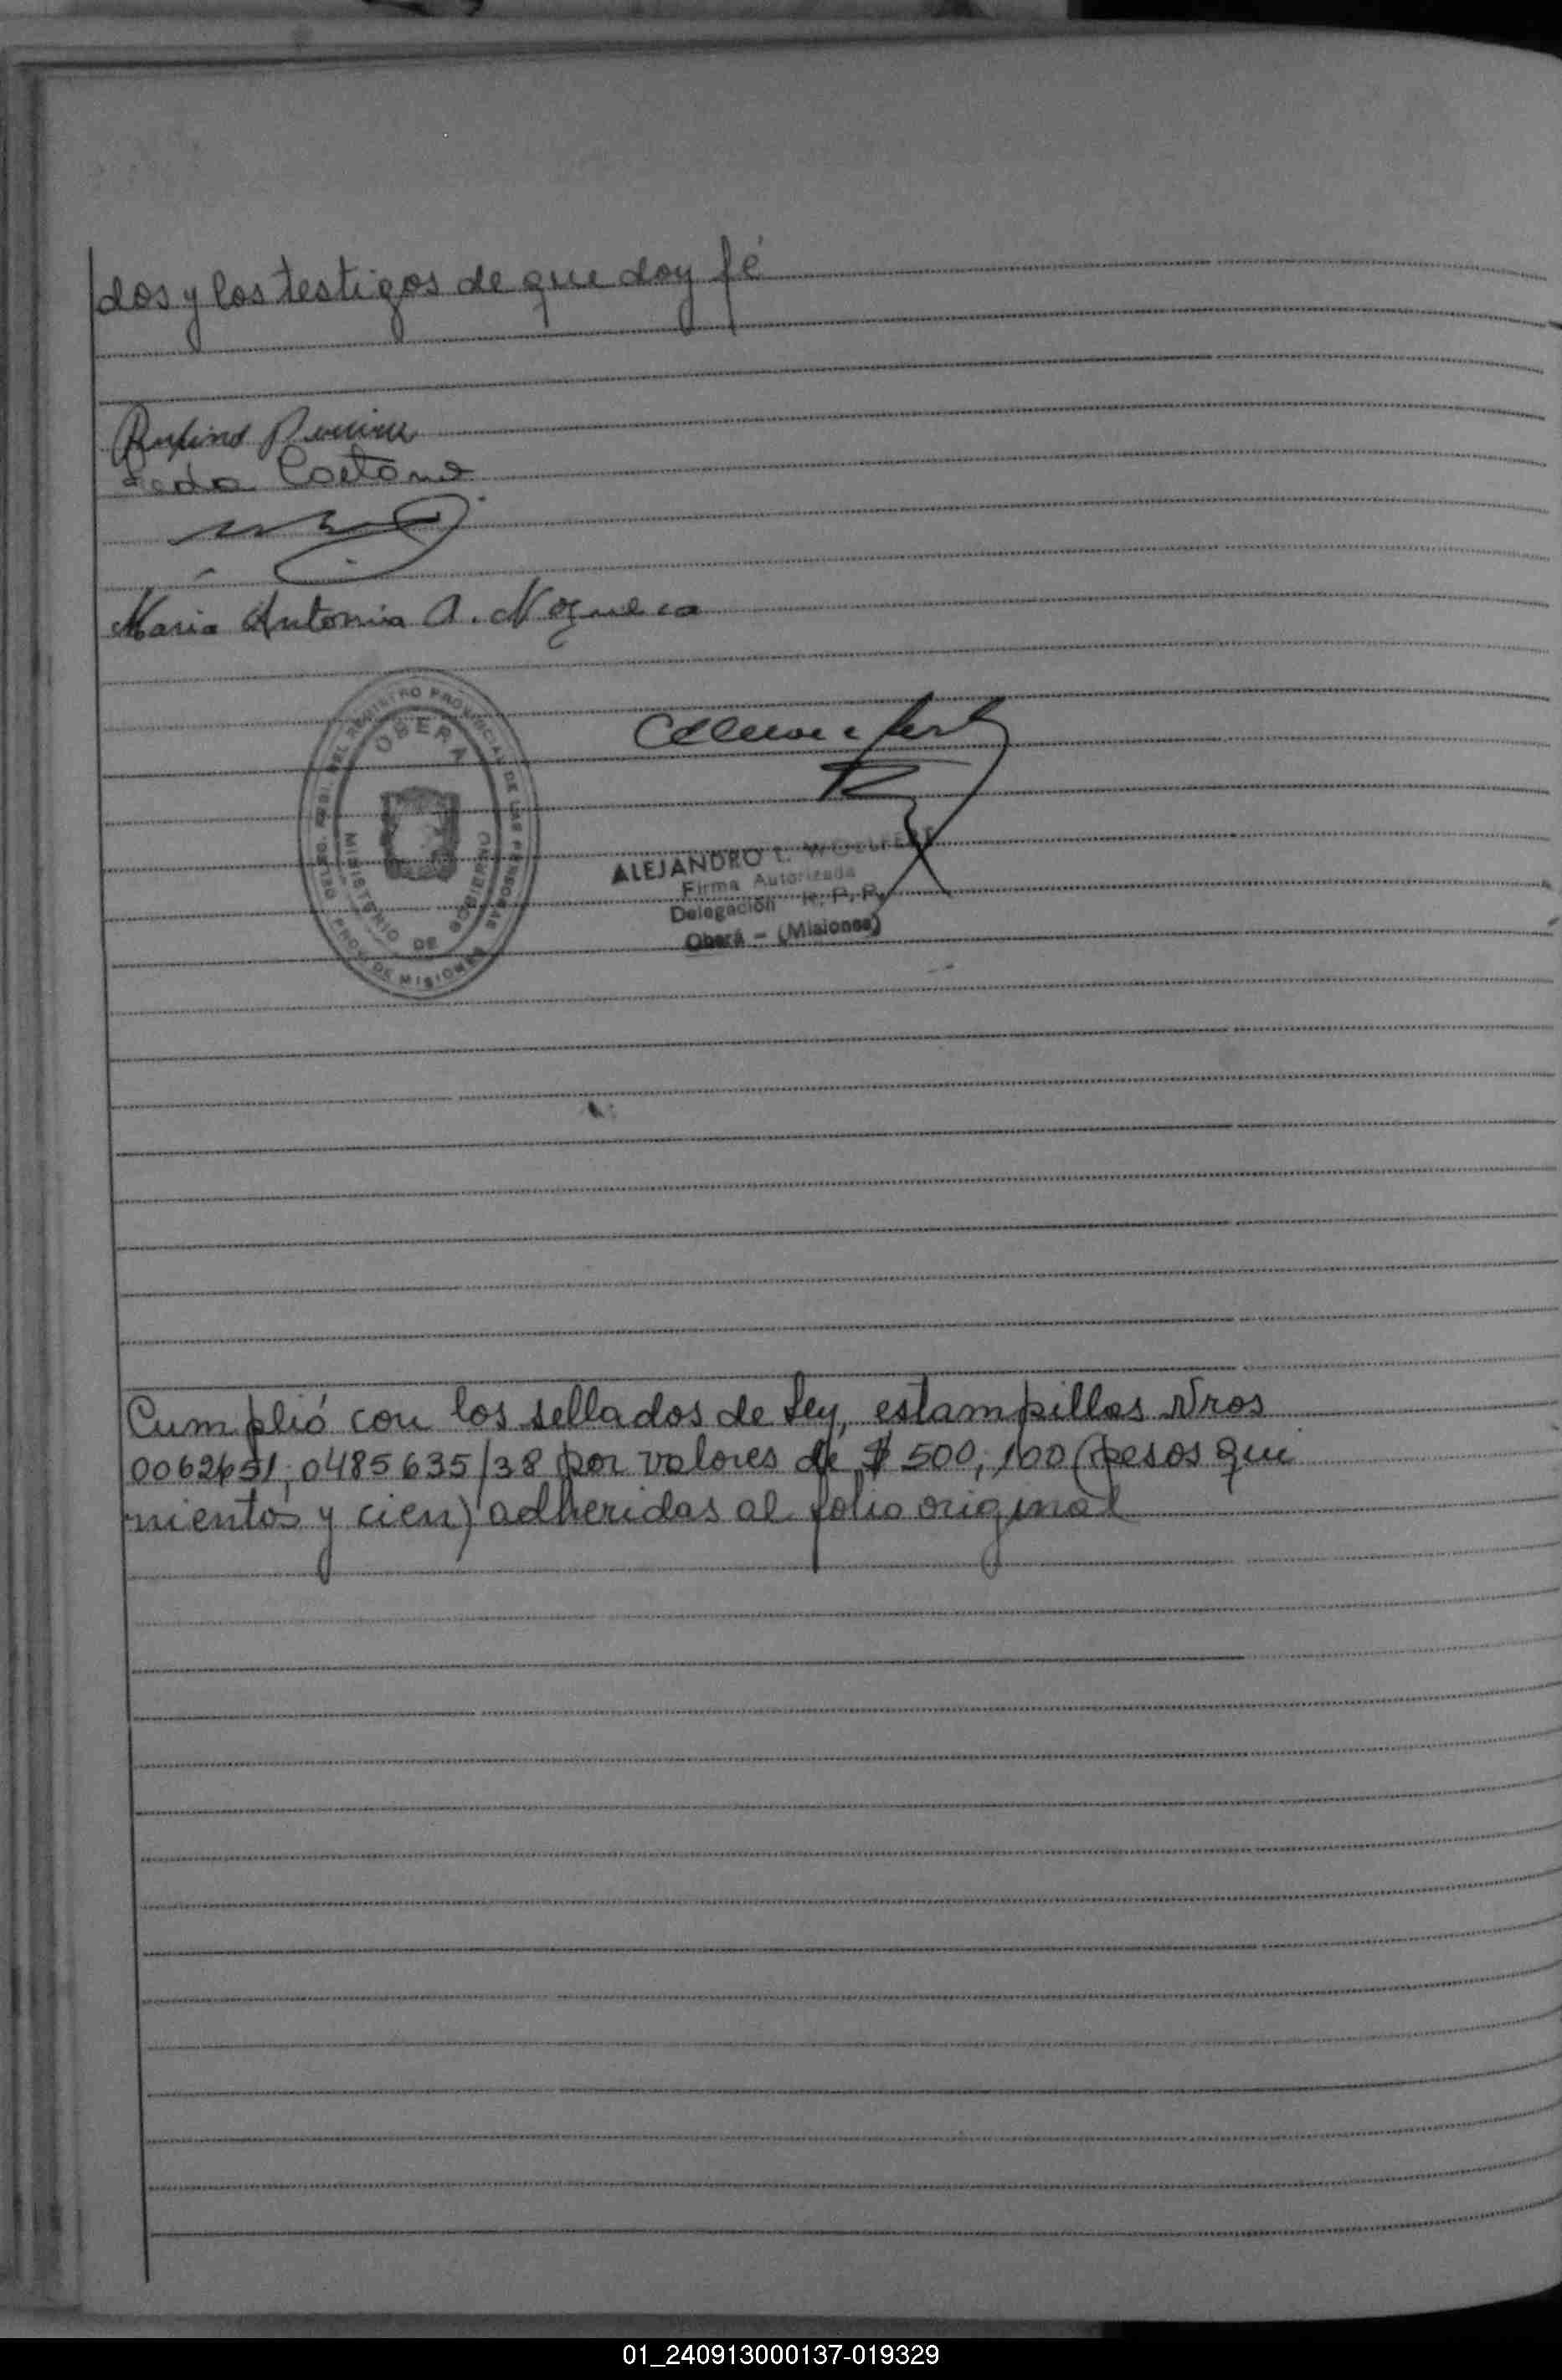 dos y los testigos de que doy fé
Rufino
Caetano
Maria Antonia A. Noguera
DEL REGISTRO PROVINCIAL DE LAS PERSONAS
OBERA
MINISTERIO DE GOBIERNO
PROV. DE MISIONES
ALEJANDRO L.
Firma Autorizada
Delegación R. P. P.
Oberá - (Misiones)
Cumplió con los sellados de Ley, estampillas Nros
0062651, 0485635/38 por valores de $ 500, 100 (pesos qui
nientos y cien) adheridas al folio original
01_240913000137-019329